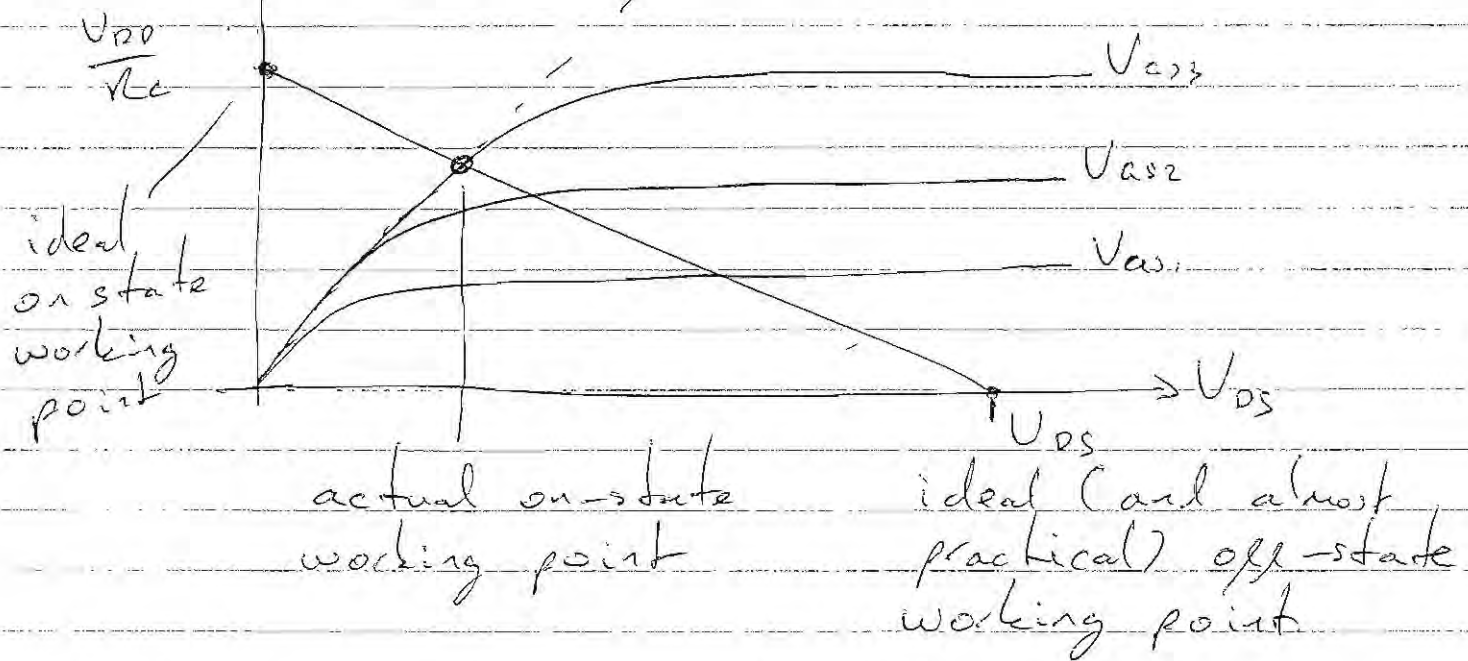 V_DD
R_L
V_GS3
V_GS2
V_GS1
ideal
on state
working
point
V_DS
V_DS
actual on-state
working point
ideal (and almost
practical) off-state
working point